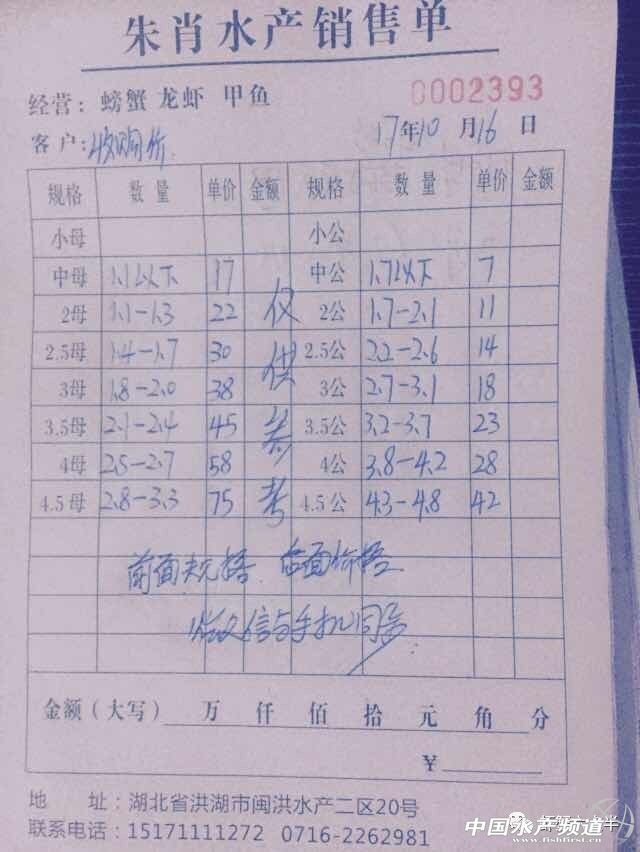 朱肖水产销售单
经营：螃蟹 龙虾 甲鱼 0002393
客户：收购价 17年10月16日
规格 数量 单价 金额 规格 数量 单价 金额
小母 小公
中母 1.1以下 17 中公 1.7以下 7
2母 1.1-1.3 22 仅 2公 1.7-2.1 11
2.5母 1.4-1.7 30 供 2.5公 2.2-2.6 14
3母 1.8-2.0 38 3公 2.7-3.1 18
3.5母 2.1-2.4 45 参 3.5公 3.2-3.7 23
4母 2.5-2.7 58 4公 3.8-4.2 28
4.5母 2.8-3.3 75 考 4.5公 4.3-4.8 42
前面规格 后面价格
微信与手机同号
金额（大写） 万 仟 佰 拾 元 角 分
¥
地 址：湖北省洪湖市闽洪水产二区20号
联系电话：15171111272 0716-2262981
中国水产频道
www.fishfirst.cn